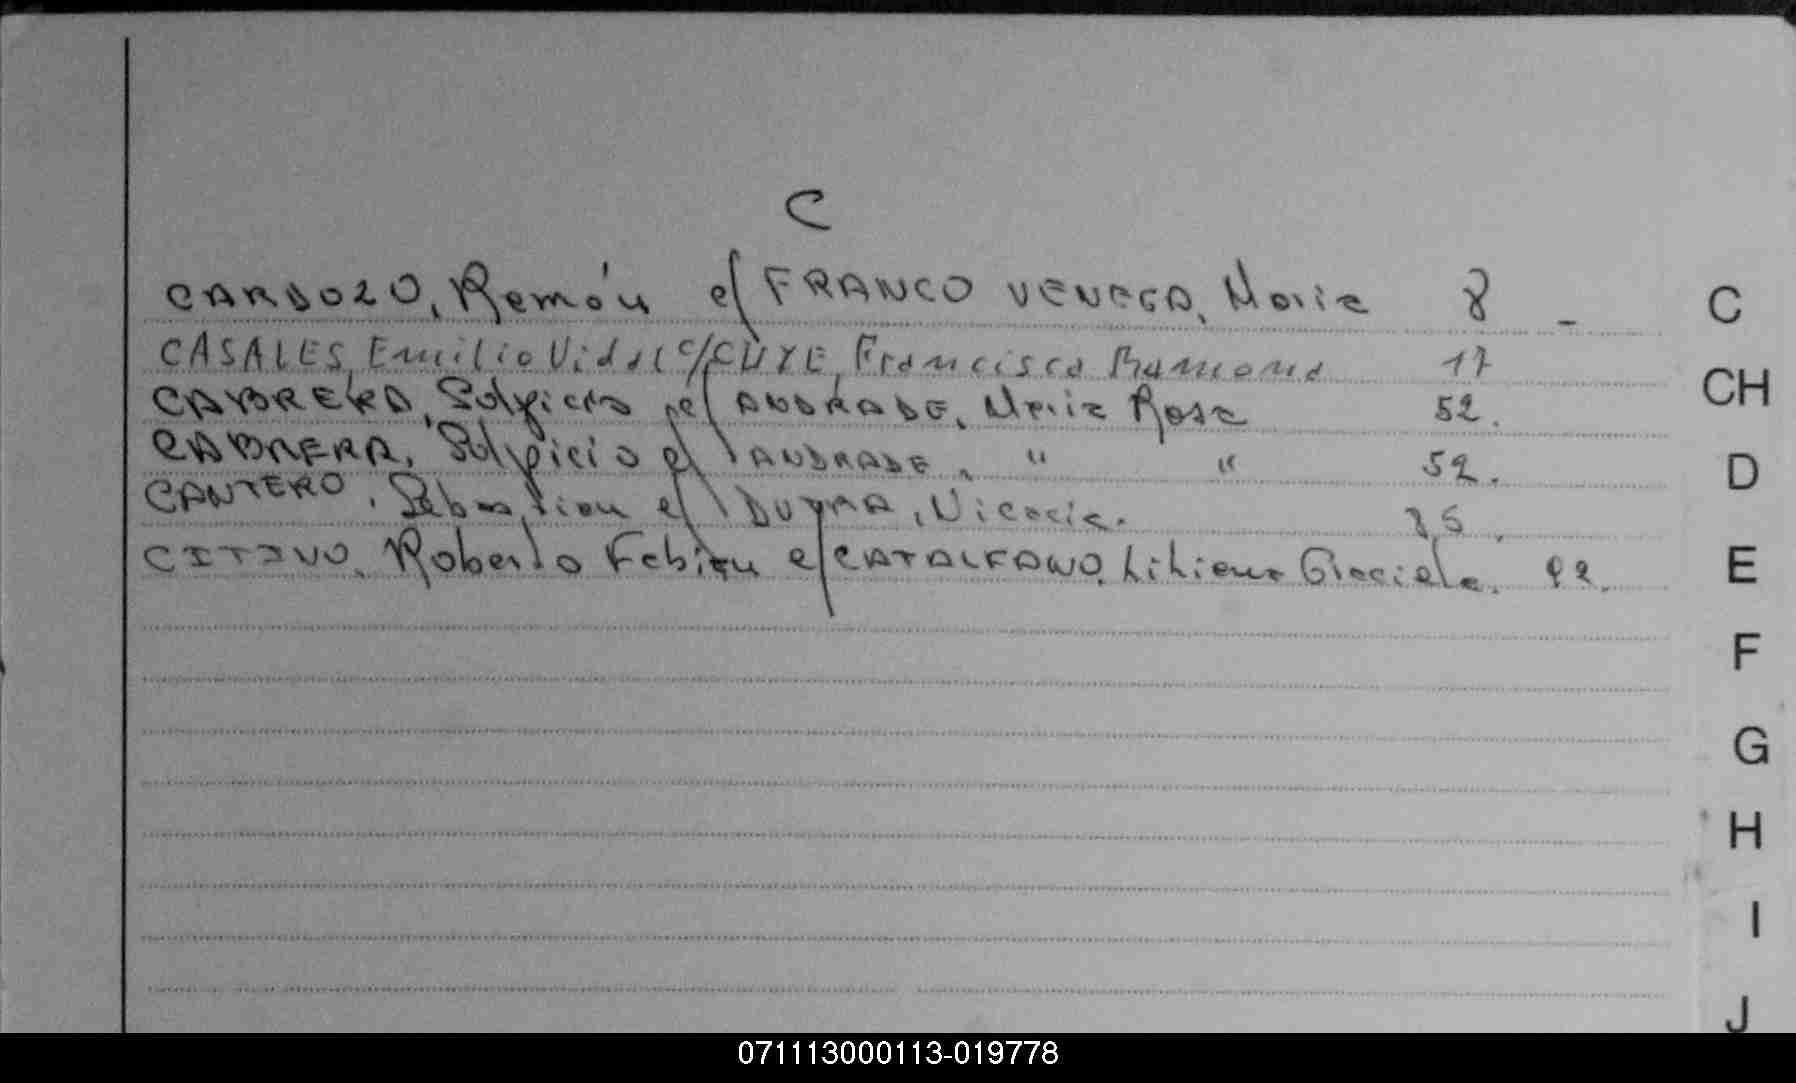 C
CARDOZO, Ramón c/ FRANCO VENEGA, Maria 8 _
CASALES, Emilio Vidal c/ CUYE, Francisca Ramona 17
CABRERA, Sulpicio c/ ANDRADE, Maria Rosa 52.
CABRERA, Sulpicio c/ ANDRADE, " " 52.
CANTERO, Sebastian c/ DUTRA, Nicacia.
CITINO, Roberto Fabian c/ CATALFANO, Liliana Graciela. 92.
C
CH
D
E
F
G
H
I
J
071113000113-019778